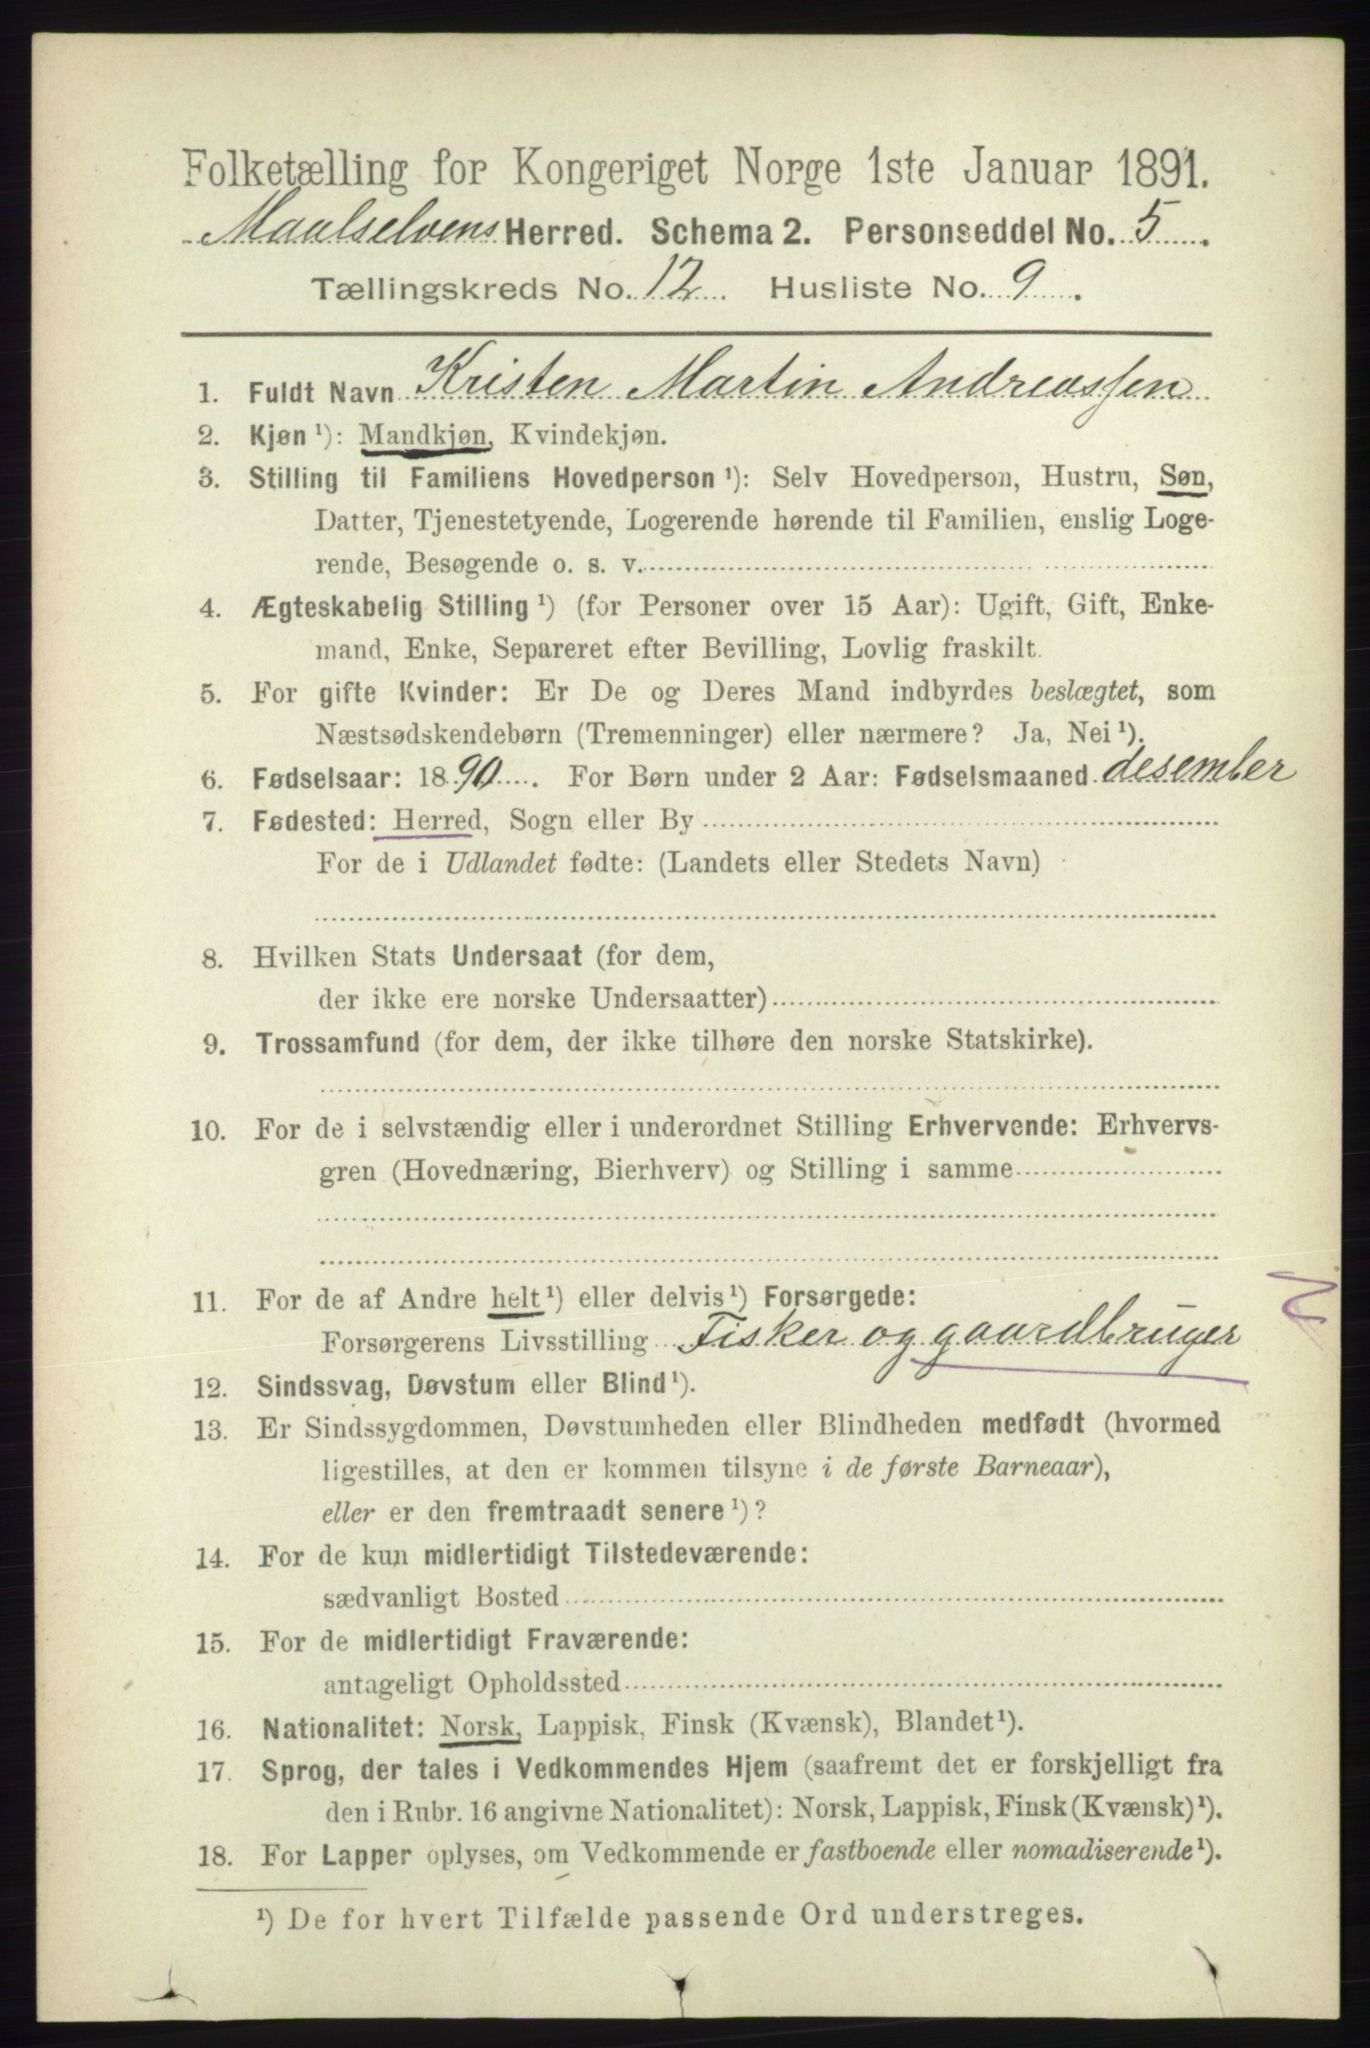 Folketælling for Kongeriget Norge 1ste Januar 1891.
Maalselvens Herred. Schema 2. Personseddel No. 5
Tællingskreds No. 12 Husliste No. 9.
1. Fuldt Navn Kristen Martin Andreassen
2. Kjøn ¹): Mandkjøn, Kvindekjøn.
3. Stilling til Familiens Hovedperson ¹): Selv Hovedperson, Hustru, Søn,
Datter, Tjenestetyende, Logerende hørende til Familien, enslig Loge-
rende, Besøgende o. s. v.
4. Ægteskabelig Stilling ¹) (for Personer over 15 Aar): Ugift, Gift, Enke-
mand, Enke, Separeret efter Bevilling, Lovlig fraskilt.
5. For gifte Kvinder: Er De og Deres Mand indbyrdes beslægtet, som
Næstsødskendebørn (Tremenninger) eller nærmere? Ja, Nei ¹).
6. Fødselsaar: 1890. For Børn under 2 Aar: Fødselsmaaned desember
7. Fødested: Herred, Sogn eller By
For de i Udlandet fødte: (Landets eller Stedets Navn)
8. Hvilken Stats Undersaat (for dem,
der ikke ere norske Undersaatter)
9. Trossamfund (for dem, der ikke tilhøre den norske Statskirke).
10. For de i selvstændig eller i underordnet Stilling Erhvervende: Erhvervs-
gren (Hovednæring, Bierhverv) og Stilling i samme
11. For de af Andre helt ¹) eller delvis ¹) Forsørgede:
Forsørgerens Livsstilling Fisker og gaardbruger
12. Sindssvag, Døvstum eller Blind ¹).
13. Er Sindssygdommen, Døvstumheden eller Blindheden medfødt (hvormed
ligestilles, at den er kommen tilsyne i de første Barneaar),
eller er den fremtraadt senere ¹)?
14. For de kun midlertidigt Tilstedeværende:
sædvanligt Bosted
15. For de midlertidigt Fraværende:
antageligt Opholdssted
16. Nationalitet: Norsk, Lappisk, Finsk (Kvænsk), Blandet ¹).
17. Sprog, der tales i Vedkommendes Hjem (saafremt det er forskjelligt fra
den i Rubr. 16 angivne Nationalitet): Norsk, Lappisk, Finsk (Kvænsk) ¹).
18. For Lapper oplyses, om Vedkommende er fastboende eller nomadiserende ¹).
¹) De for hvert Tilfælde passende Ord understreges.